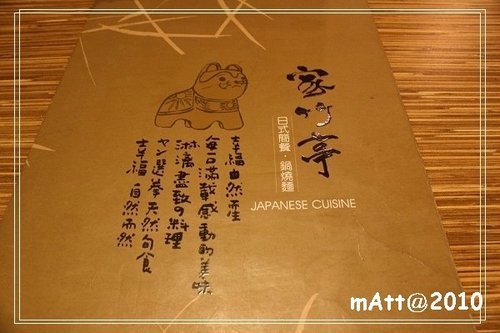 室竹亭
日式簡餐·鍋燒麵
JAPANESE CUISINE
幸福由然而生
每口滿載感動的美味
淋漓盡致の料理
ヤン選季天然旬食
幸福自然而然
mAtt@2010